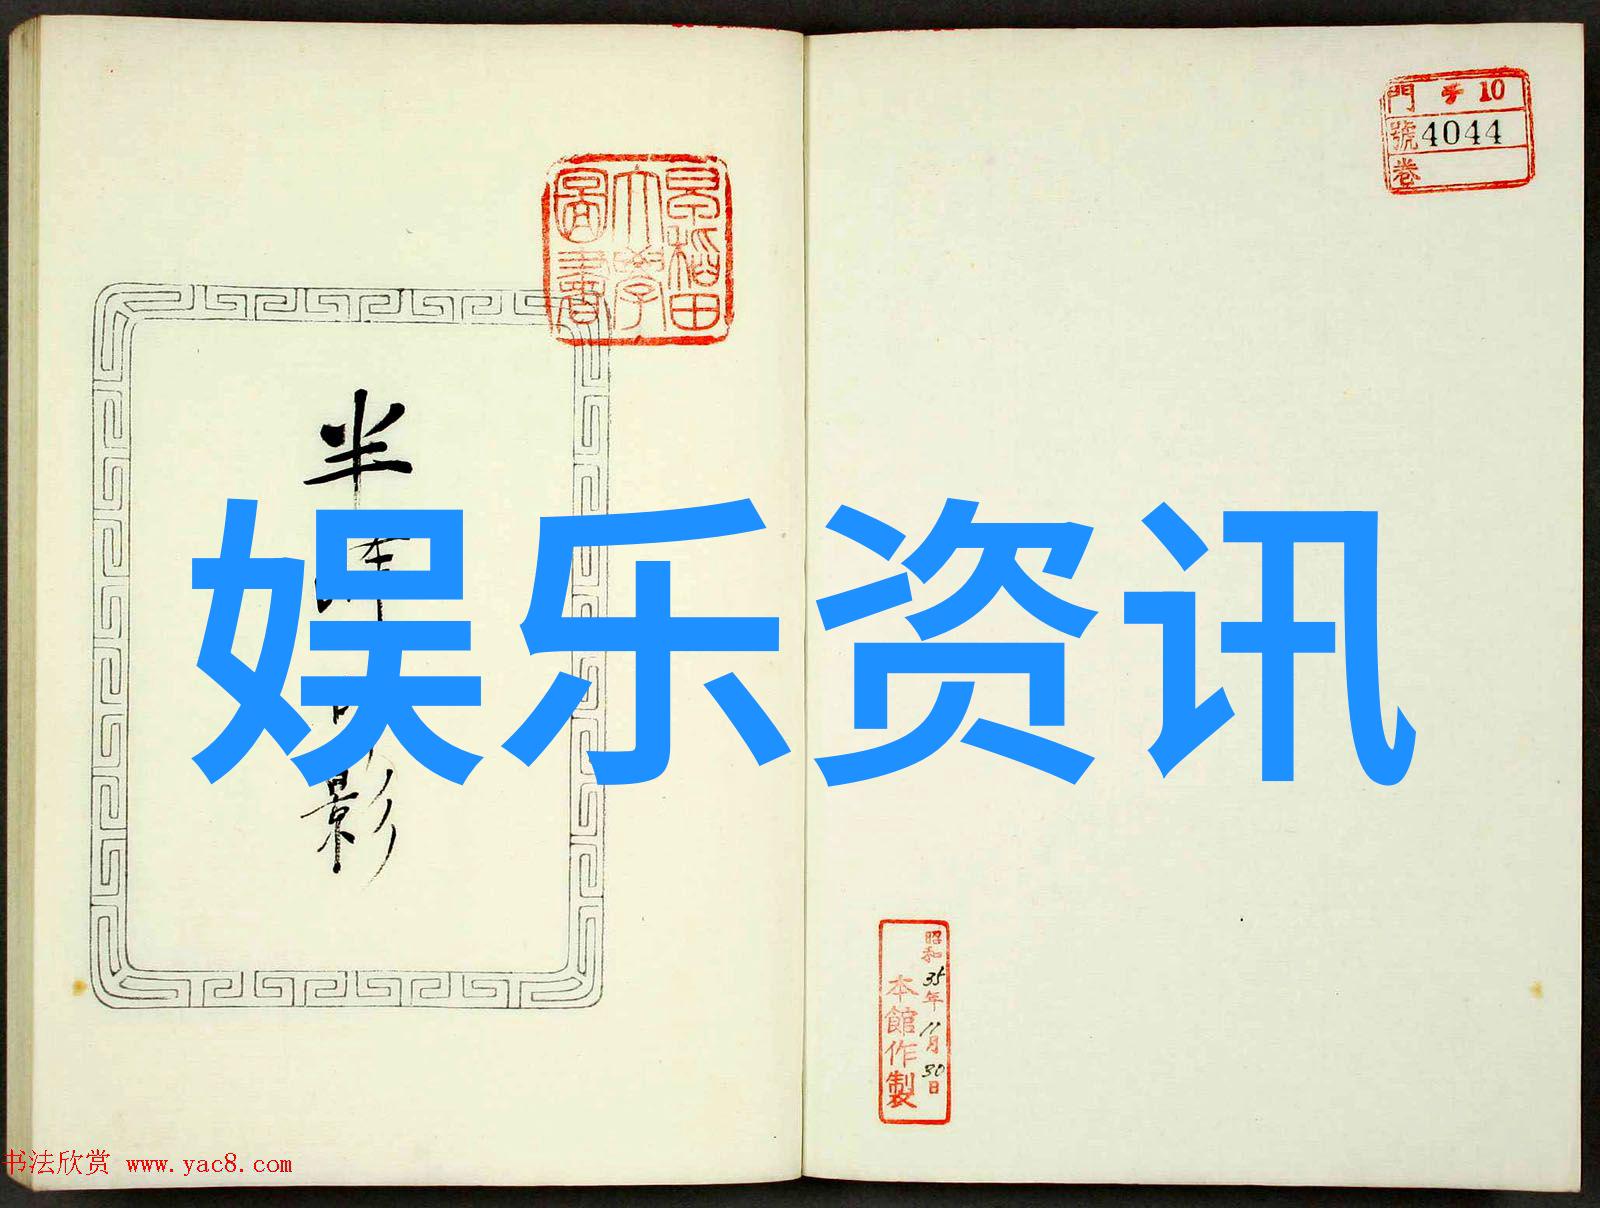 早稻田
大學
圖書
半
影
門 チ 10
號 4044
卷
娱乐资讯
昭和35年11月30日
本館作製
书法欣赏 www.yac8.com